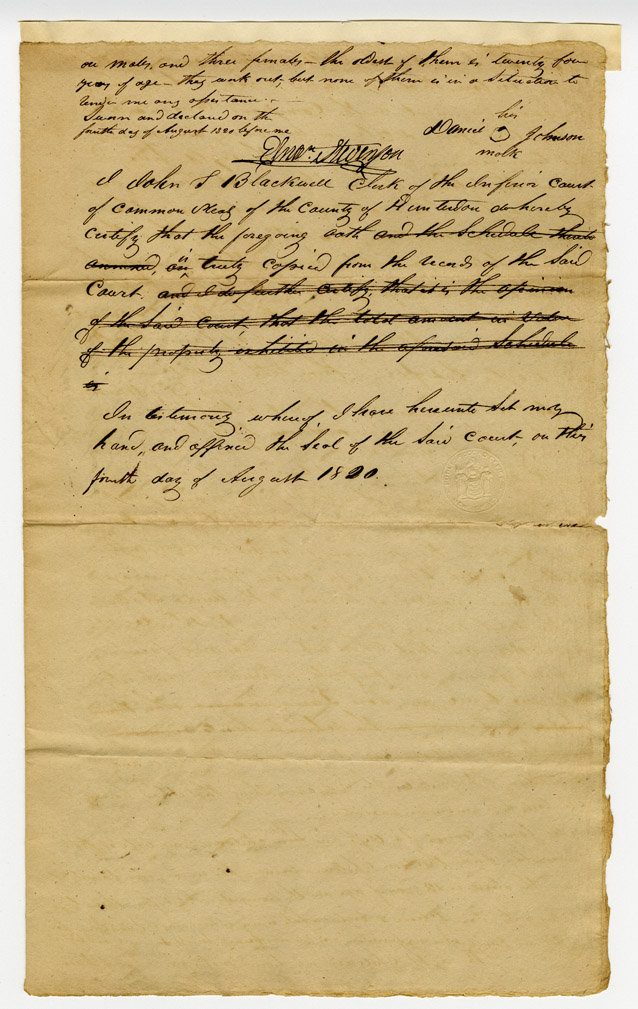 are males, and three females — the oldest of them is twenty four
years of age — they work out, but none of them is in a situation to
render me any assistance. —
Sworn and declared on the
fourth day of August 1820 before me
his
Daniel Johnson
mark
Stevenson
I John S Blackwell Clerk of the Inferior Court
of Common Pleas of the County of Hunterdon do hereby
certify that the foregoing oath and the Schedule thereto
annexed, is truly copied from the records of the said
Court. and I do further certify, that it is the opinion
of the said Court, that the total amount in value
of the property exhibited in the aforesaid Schedule
is
In testimony whereof, I have hereunto set my
hand, and affixed the Seal of the said Court, on this
fourth day of August 1820.